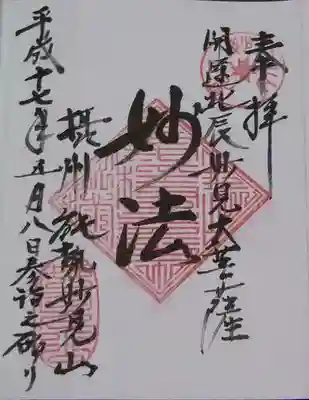 奉拝
開運北辰妙見大菩薩
妙法
摂州能勢妙見山
平成十七年五月八日参詣之砌り